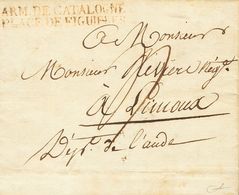 ARM. DE CATALOGNE
PLACE DE FIGUIERES
A Monsieur
Monsieur Rivière Négt.
à Limoux
Dépt. de l'aude